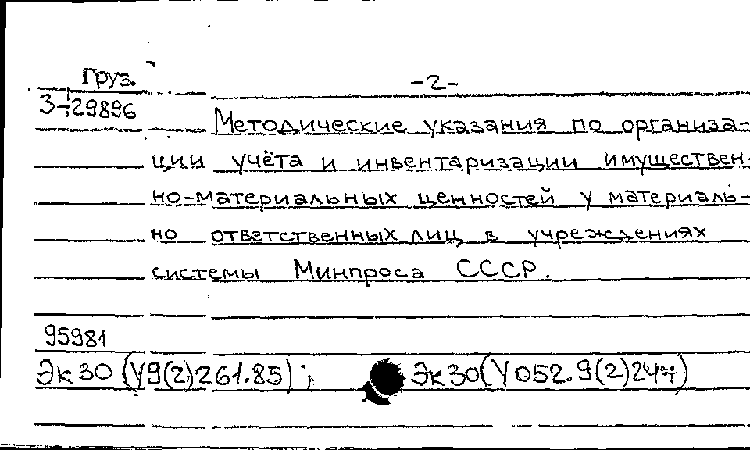 Груз. -2-
3-29896
Методические указания по организа-
ции учёта и инвентаризации имуществен-
но-материальных ценностей у материаль-
но ответственных лиц в учреждениях
системы Минпроса СССР.
95981
Эк30 (У9(2)261.85); Эк30(У052.9(2)247)